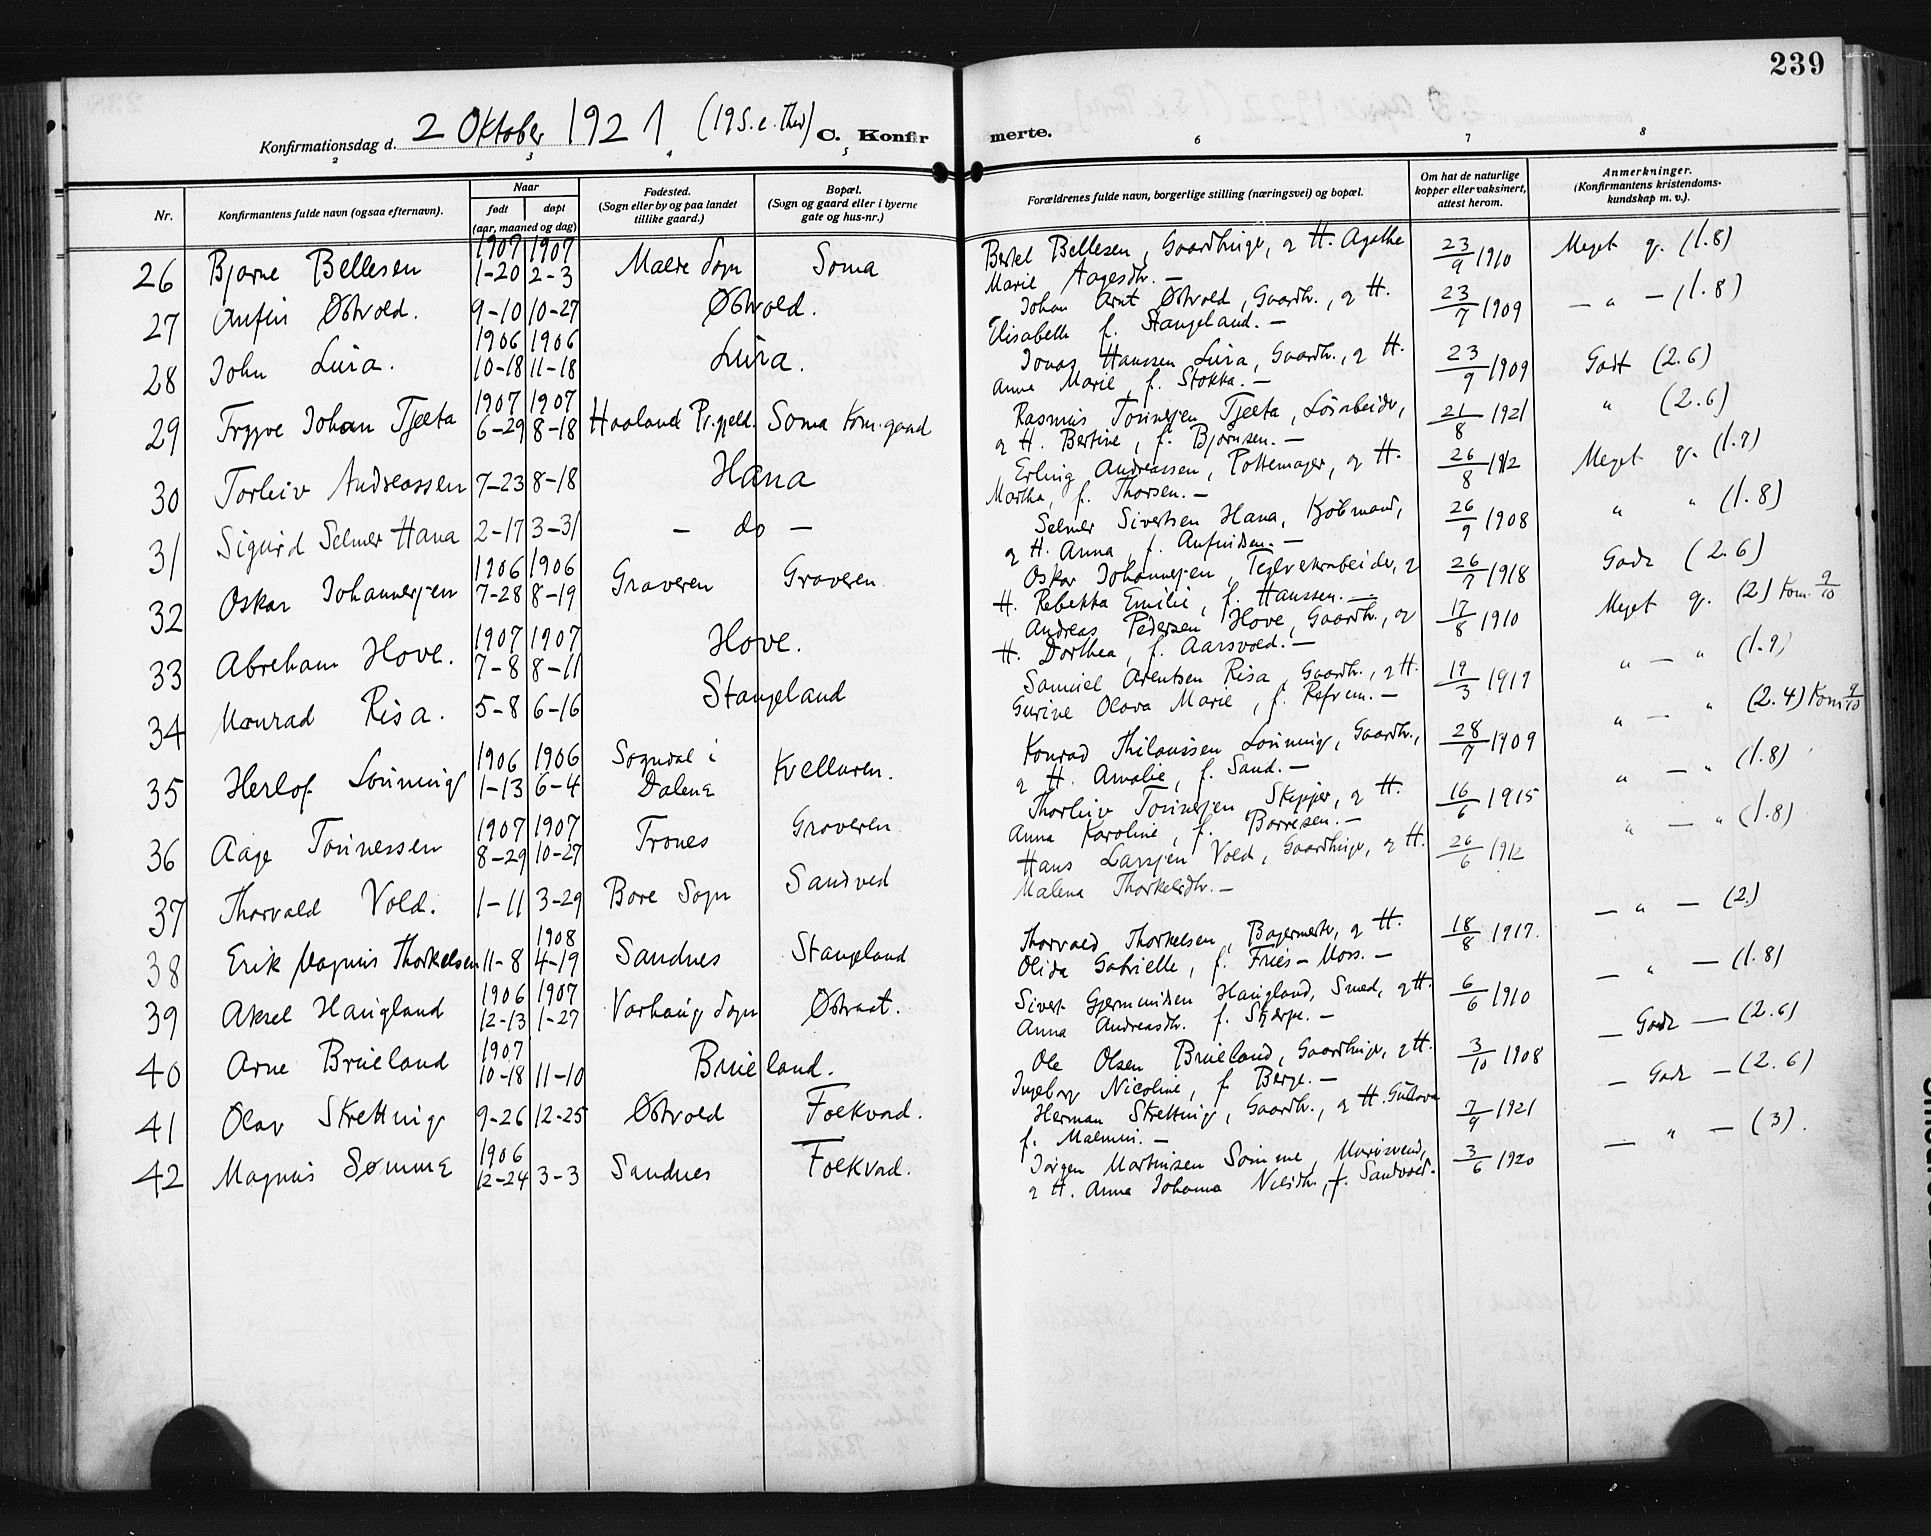 239
Konfirmationsdag d. 2 Oktober 1921 (19 S. e. Tref) C. Konfirmerte.
2 3 4 5 6 7 8
Nr. Konfirmantens fulde navn (ogsaa efternavn). Naar født døpt (aar, maaned og dag) Fødested. (Sogn eller by og paa landet tillike gaard.) Bopæl. (Sogn og gaard eller i byerne gate og hus-nr.) Forældrenes fulde navn, borgerlige stilling (næringsvei) og bopæl. Om hat de naturlige kopper eller vaksinert, attest herom. Anmerkninger. (Konfirmantens kristendoms-kundskap m. v.).
26 Bjarne Bellesen 1907 1-20 1907 2-3 Malde Sogn Soma Bertel Bellesen, Gaardbruger, og H. Agathe Marie Aagesdtr. — 23/9 1910 Meget g. (1.8)
27 Anfin Østvold. 9-10 10-27 Østvold. Johan Arnt Østvold, Gaardbr., og H. Elisabeth f. Stangeland. — 23/7 1909 — " — (1.8)
28 John Lura. 1906 10-18 1906 11-18 Lura. Jonas Hanssen Lura, Gaardbr., og H. Anna Marie, f. Stokka. — 23/9 1909 Godt (2.6)
29 Trygve Johan Tjelta 1907 6-29 1907 8-18 Haaland Pr.gjeld. Soma Kom.gaard Rasmus Tønnesen Tjelta, Løsarbeider, og H. Bertine, f. Bjørnsen. — 21/8 1921 " (2.6)
30 Torleiv Andreassen 7-23 8-18 Hana Erling Andreassen, Pottemager, og H. Martha, f. Thorsen. — 26/8 1912 Meget g. (1.7)
31 Sigurd Selmer Hana 2-17 3-31 — do — Selmer Sivertsen Hana, Kjøbmand, og H. Anna, f. Anfindsen. — 26/9 1908 " " (1.8)
32 Oskar Johannesen 1906 7-28 1906 8-19 Graveren Graveren Oskar Johannesen, Teglverksarbeider, og H. Rebekka Emilie, f. Hanssen. — 26/7 1918 Godt (2.6)
33 Abraham Hove. 1907 7-8 1907 8-11 Hove. Andreas Pedersen Hove, Gaardbr., og H. Dorthea, f. Aarsvold. — 17/8 1910 Meget g. (2) Kom. 9/10
34 Konrad Risa. 5-8 6-16 Stangeland Samuel Arentsen Risa, Gaardbr., og H. Gurine Olava Marie, f. Refvem. — 19/3 1919 " — " (1.9)
35 Herlof Lønning 1906 1-13 1906 6-4 Sogndal i Dalene Kvelluren. Konrad Thilaussen Lønning, Gaardbr., og H. Amalie, f. Sand. — 28/7 1909 " — " (2.4) Kom 9/10
36 Aage Tønnessen 1907 8-29 1907 10-27 Trones Graveren Thorleiv Tønnesen, Skipper, og H. Anna Karoline, f. Børresen. — 16/6 1915 " — " (1.8)
37 Thorvald Vold. 1-11 3-29 Bore Sogn Sandved Hans Larsen Vold, Gaardbruger, og H. Malena Thorkelsdtr. — 26/6 1912 " — " (1.8)
38 Erik Magnus Thorkelsen 11-8 1908 4-19 Sandnes Stangeland Thorvald Thorkelsen, Bagermester, og H. Olida Gabrielle, f. Friis-Moss. — 18/8 1917. — " — (2.)
39 Aksel Haugland 1906 12-13 1907 1-27 Varhaug Sogn Østraat. Sivert Gjermundsen Haugland, Smed, og H. Anna Andreasdtr. f. Skjærpe. — 6/6 1910 — " — (1.8)
40 Arne Brueland 1907 10-18 11-10 Brueland. Ole Olsen Brueland, Gaardbruger, og H. Ingeborg Nicoline, f. Berge. — 3/10 1908 — Godt — (2.6)
41 Olav Skretting 9-26 12-25 Østvold Folkvord. Herman Skretting, Gaardbr., og H. Gustava f. Malmin. — 7/9 1921 — Godt — (2.6)
42 Magnus Sømme 1906 12-24 3-3 Sandnes Folkvord. Jørgen Martinsen Sømme, Mursvend, og H. Anna Johanna Nilsdtr., f. Sandvold. 3/6 1920 — " — (3).